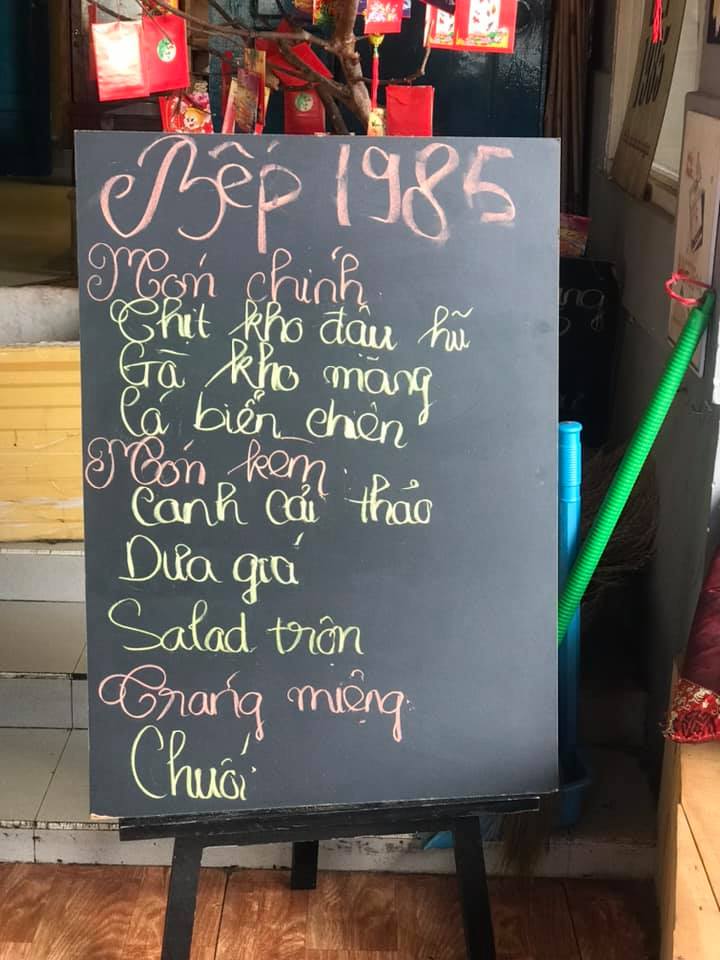 Bếp 1985
Món chính
Thịt kho đậu hũ
Gà kho măng
Cá biển chiên
Món kèm
Canh cải thảo
Dưa giá
Salad trộn
Tráng miệng
Chuối